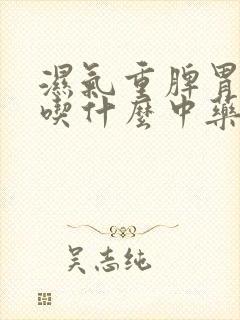 濕氣重脾胃
喫什麼中藥
吴志纯